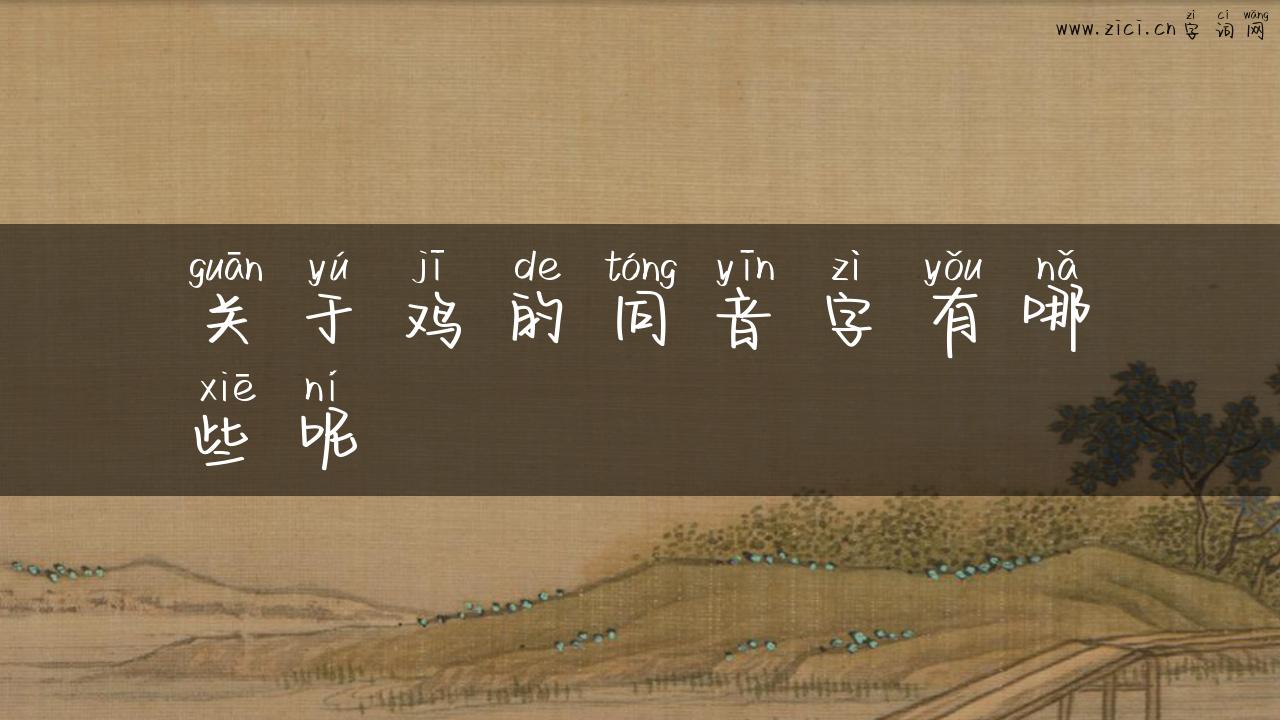 zì cí wǎng
www.zici.cn字词网
guān yú jī de tóng yīn zì yǒu nǎ
关于鸡的同音字有哪
xiē ní
些呢